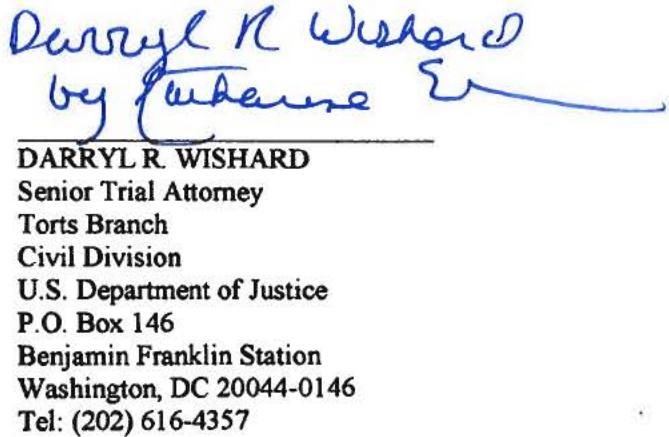 Darryl R Wishard
by
DARRYL R. WISHARD
Senior Trial Attorney
Torts Branch
Civil Division
U.S. Department of Justice
P.O. Box 146
Benjamin Franklin Station
Washington, DC 20044-0146
Tel: (202) 616-4357